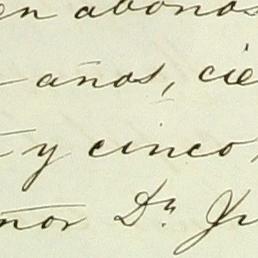 en abonos
años, cie
y cinco,
ñor Dn. Ju